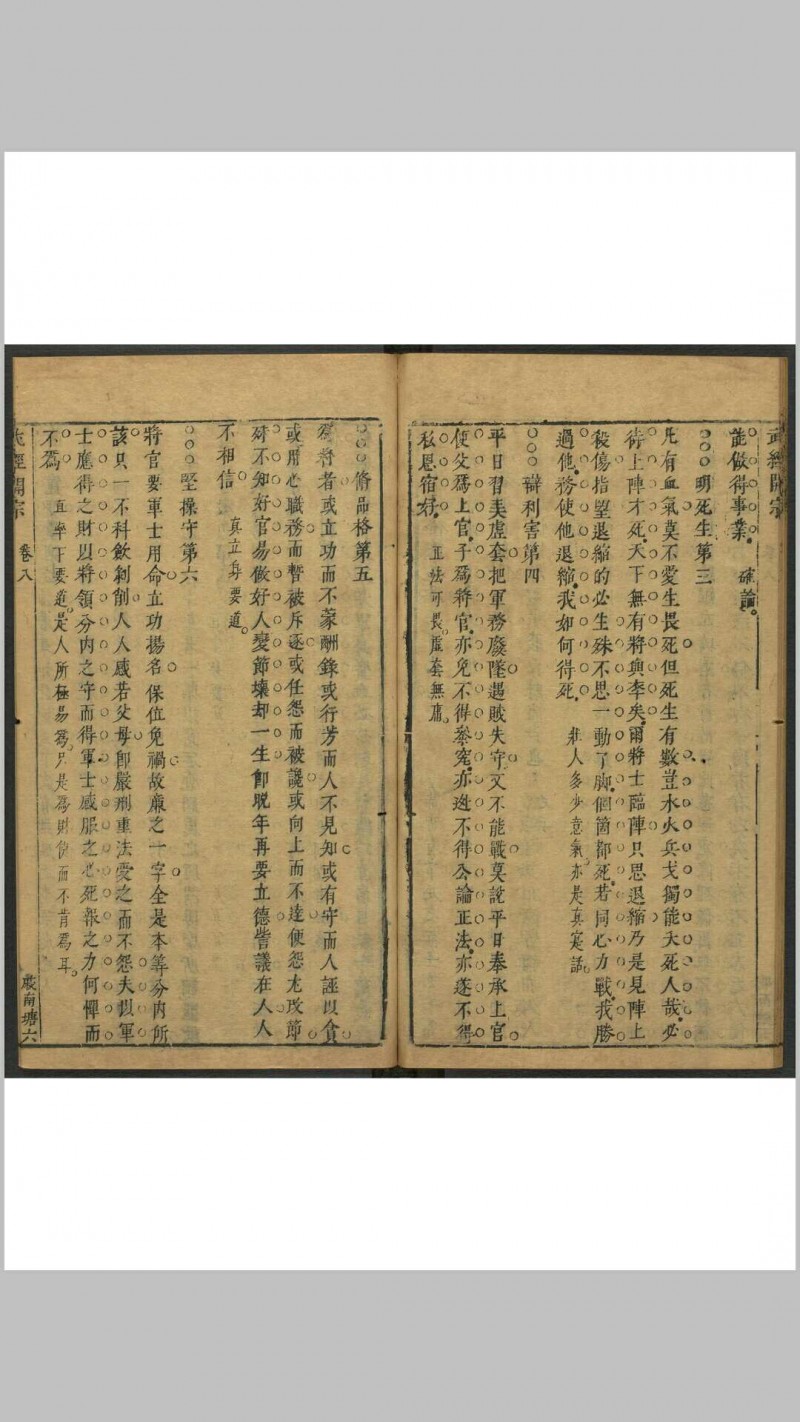 武經開宗
能做得事業 確論
明死生第三
凡有血氣莫不愛生畏死但死生有數豈水火兵戈獨能大死人哉必
待上陣才死天下無有將與李矣爾將士臨陣只思退縮乃是見陣上
殺傷指望退縮的必生殊不思一動了脚個箇都死若同心力戰我勝
過他務使他退縮我如何得死 非人多少意氣亦是真寔話
辯利害第四
平日習美虛套把軍務廢墜遇賊失守又不能戰莫說平日奉承上官
便父爲上官子爲將官亦免不得叅宪亦逃不得公論正法亦遂不得
私恩宿好 正法可畏虛套無庸
脩品格第五
爲將者或立功而不蒙酬錄或行芳而人不見知或有守而人誣以貪
或用心職務而暫被斥逐或任怨而被讒或向上而不達便怨尤改節
殊不知好官易做好人變節壞却一生卽晚年再要立德訾議在人人
不相信 真立身要道
堅操守第六
將官要軍士用命立功揚名保位免禍故廉之一字全是本等分內所
該只一不科歛剝削人人感若父母卽嚴刑重法愛之而不怨夫以軍
士應得之財以將領分內之守而得軍士感服之心死報之力何憚而
不爲 直率下要道是人所極易爲只是爲財使而不肯爲耳
武經開宗 卷八 嚴南塘六